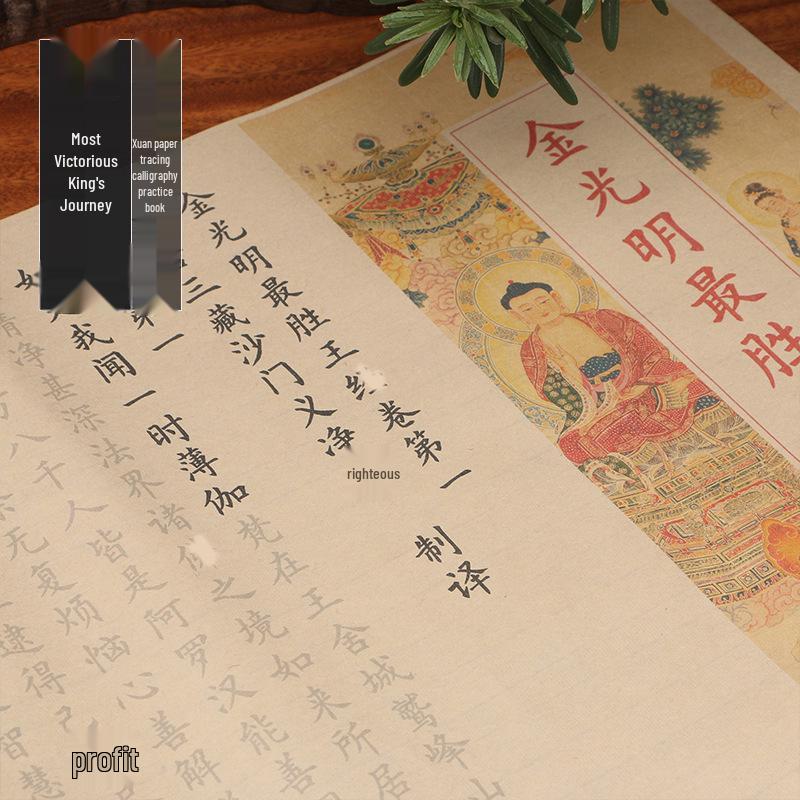 Most
Victorious
King's
Journey
Xuan paper
tracing
calligraphy
practice
book
金光明最胜
金光明最胜王经卷第一
三藏沙门义净
righteous
制译
第一
如我闻一时薄伽梵在王舍城鹫峰山
清净甚深法界诸之境如来所居
八千人皆是阿罗汉能善
无复烦恼心善解
逮得
profit
智慧